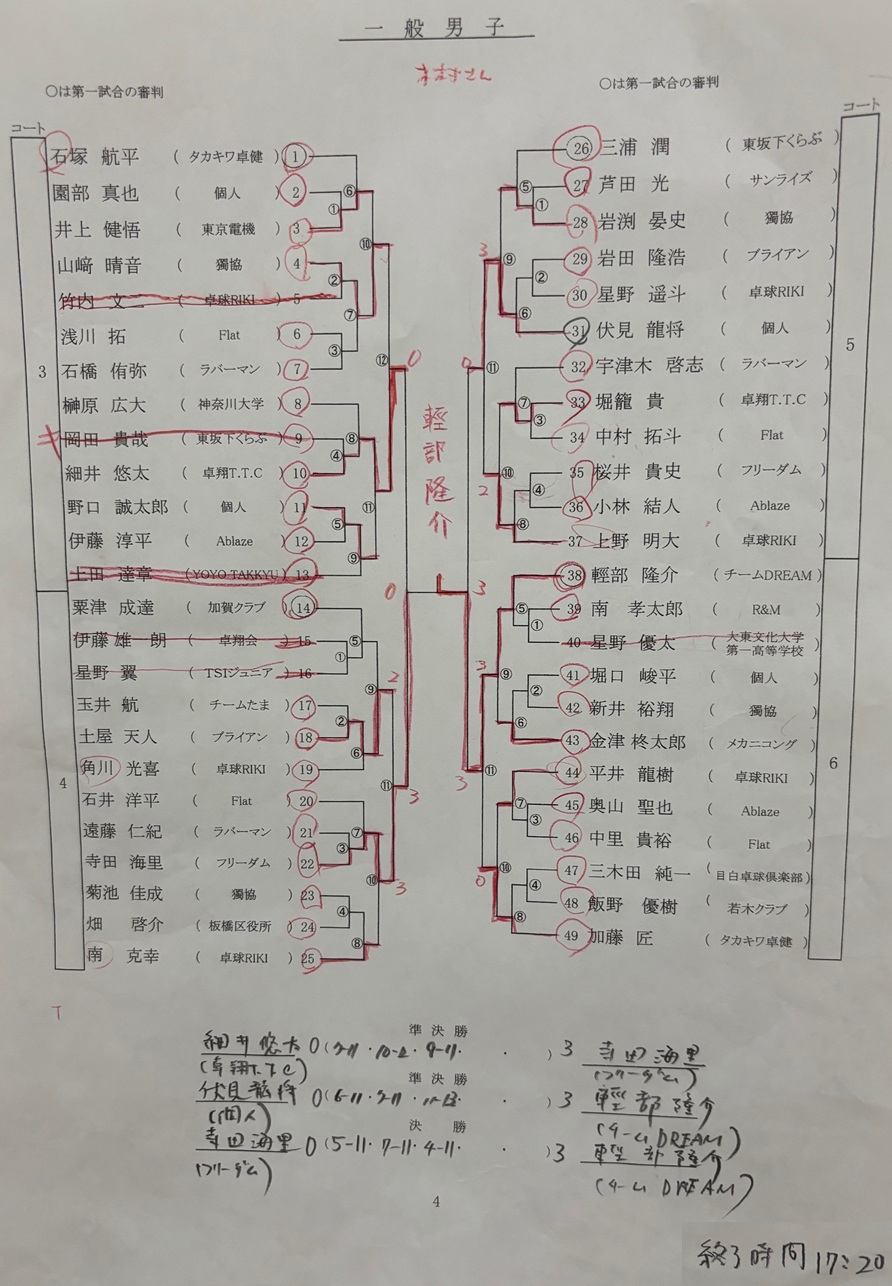 一般男子
〇は第一試合の審判
〇は第一試合の審判
コート
コート
3
4
石塚 航平 ( タカキワ卓健 ) 1
園部 真也 ( 個人 ) 2
井上 健悟 ( 東京電機 ) 3
山﨑 晴音 ( 獨協 ) 4
竹内 文 ( 卓球RIKI ) 5
浅川 拓 ( Flat ) 6
石橋 侑弥 ( ラバーマン ) 7
榊原 広大 ( 神奈川大学 ) 8
岡田 貴哉 ( 東坂下くらぶ ) 9
細井 悠太 ( 卓翔T.T.C ) 10
野口 誠太郎 ( 個人 ) 11
伊藤 淳平 ( Ablaze ) 12
上田 達章 ( YOYO TAKKYU ) 13
粟津 成達 ( 加賀クラブ ) 14
伊藤 雄一朗 ( 卓翔会 ) 15
星野 翼 ( TSIジュニア ) 16
玉井 航 ( チームたま ) 17
土屋 天人 ( ブライアン ) 18
角川 光喜 ( 卓球RIKI ) 19
石井 洋平 ( Flat ) 20
遠藤 仁紀 ( ラバーマン ) 21
寺田 海里 ( フリーダム ) 22
菊池 佳成 ( 獨協 ) 23
畑 啓介 ( 板橋区役所 ) 24
南 克幸 ( 卓球RIKI ) 25
① ② ③ ④ ⑤ ⑥ ⑦ ⑧ ⑨ ⑩ ⑪ ⑫
① ② ③ ④ ⑤ ⑥ ⑦ ⑧ ⑨ ⑩ ⑪
0
0
2
3
3
輕部隆介
5
6
26 三浦 潤 ( 東坂下くらぶ )
27 芦田 光 ( サンライズ )
28 岩渕 晏史 ( 獨協 )
29 岩田 隆浩 ( ブライアン )
30 星野 遥斗 ( 卓球RIKI )
31 伏見 龍将 ( 個人 )
32 宇津木 啓志 ( ラバーマン )
33 堀籠 貴 ( 卓翔T.T.C )
34 中村 拓斗 ( Flat )
35 桜井 貴史 ( フリーダム )
36 小林 結人 ( Ablaze )
37 上野 明大 ( 卓球RIKI )
38 輕部 隆介 ( チームDREAM )
39 南 孝太郎 ( R&M )
40 星野 優太 ( 大東文化大学第一高等学校 )
41 堀口 峻平 ( 個人 )
42 新井 裕翔 ( 獨協 )
43 金津 柊太郎 ( メカニコング )
44 平井 龍樹 ( 卓球RIKI )
45 奥山 聖也 ( Ablaze )
46 中里 貴裕 ( Flat )
47 三木田 純一 ( 目白卓球倶楽部 )
48 飯野 優樹 ( 若木クラブ )
49 加藤 匠 ( タカキワ卓健 )
① ② ③ ④ ⑤ ⑥ ⑦ ⑧ ⑨ ⑩ ⑪
① ② ③ ④ ⑤ ⑥ ⑦ ⑧ ⑨ ⑩ ⑪
3
0
2
3
3
3
0
T
準決勝
細井悠太 0 ( ・ ・ 9-11 ・ ・ ) 3 寺田海里
(卓翔T.T.C) (フリーダム)
準決勝
伏見龍将 0 (6-11 ・ ・ ・ ・ ) 3 輕部隆介
(個人) (チームDREAM)
決勝
寺田海里 0 (5-11・7-11・4-11・ ・ ) 3 輕部隆介
(フリーダム) (チームDREAM)
4
終了時間 17:20